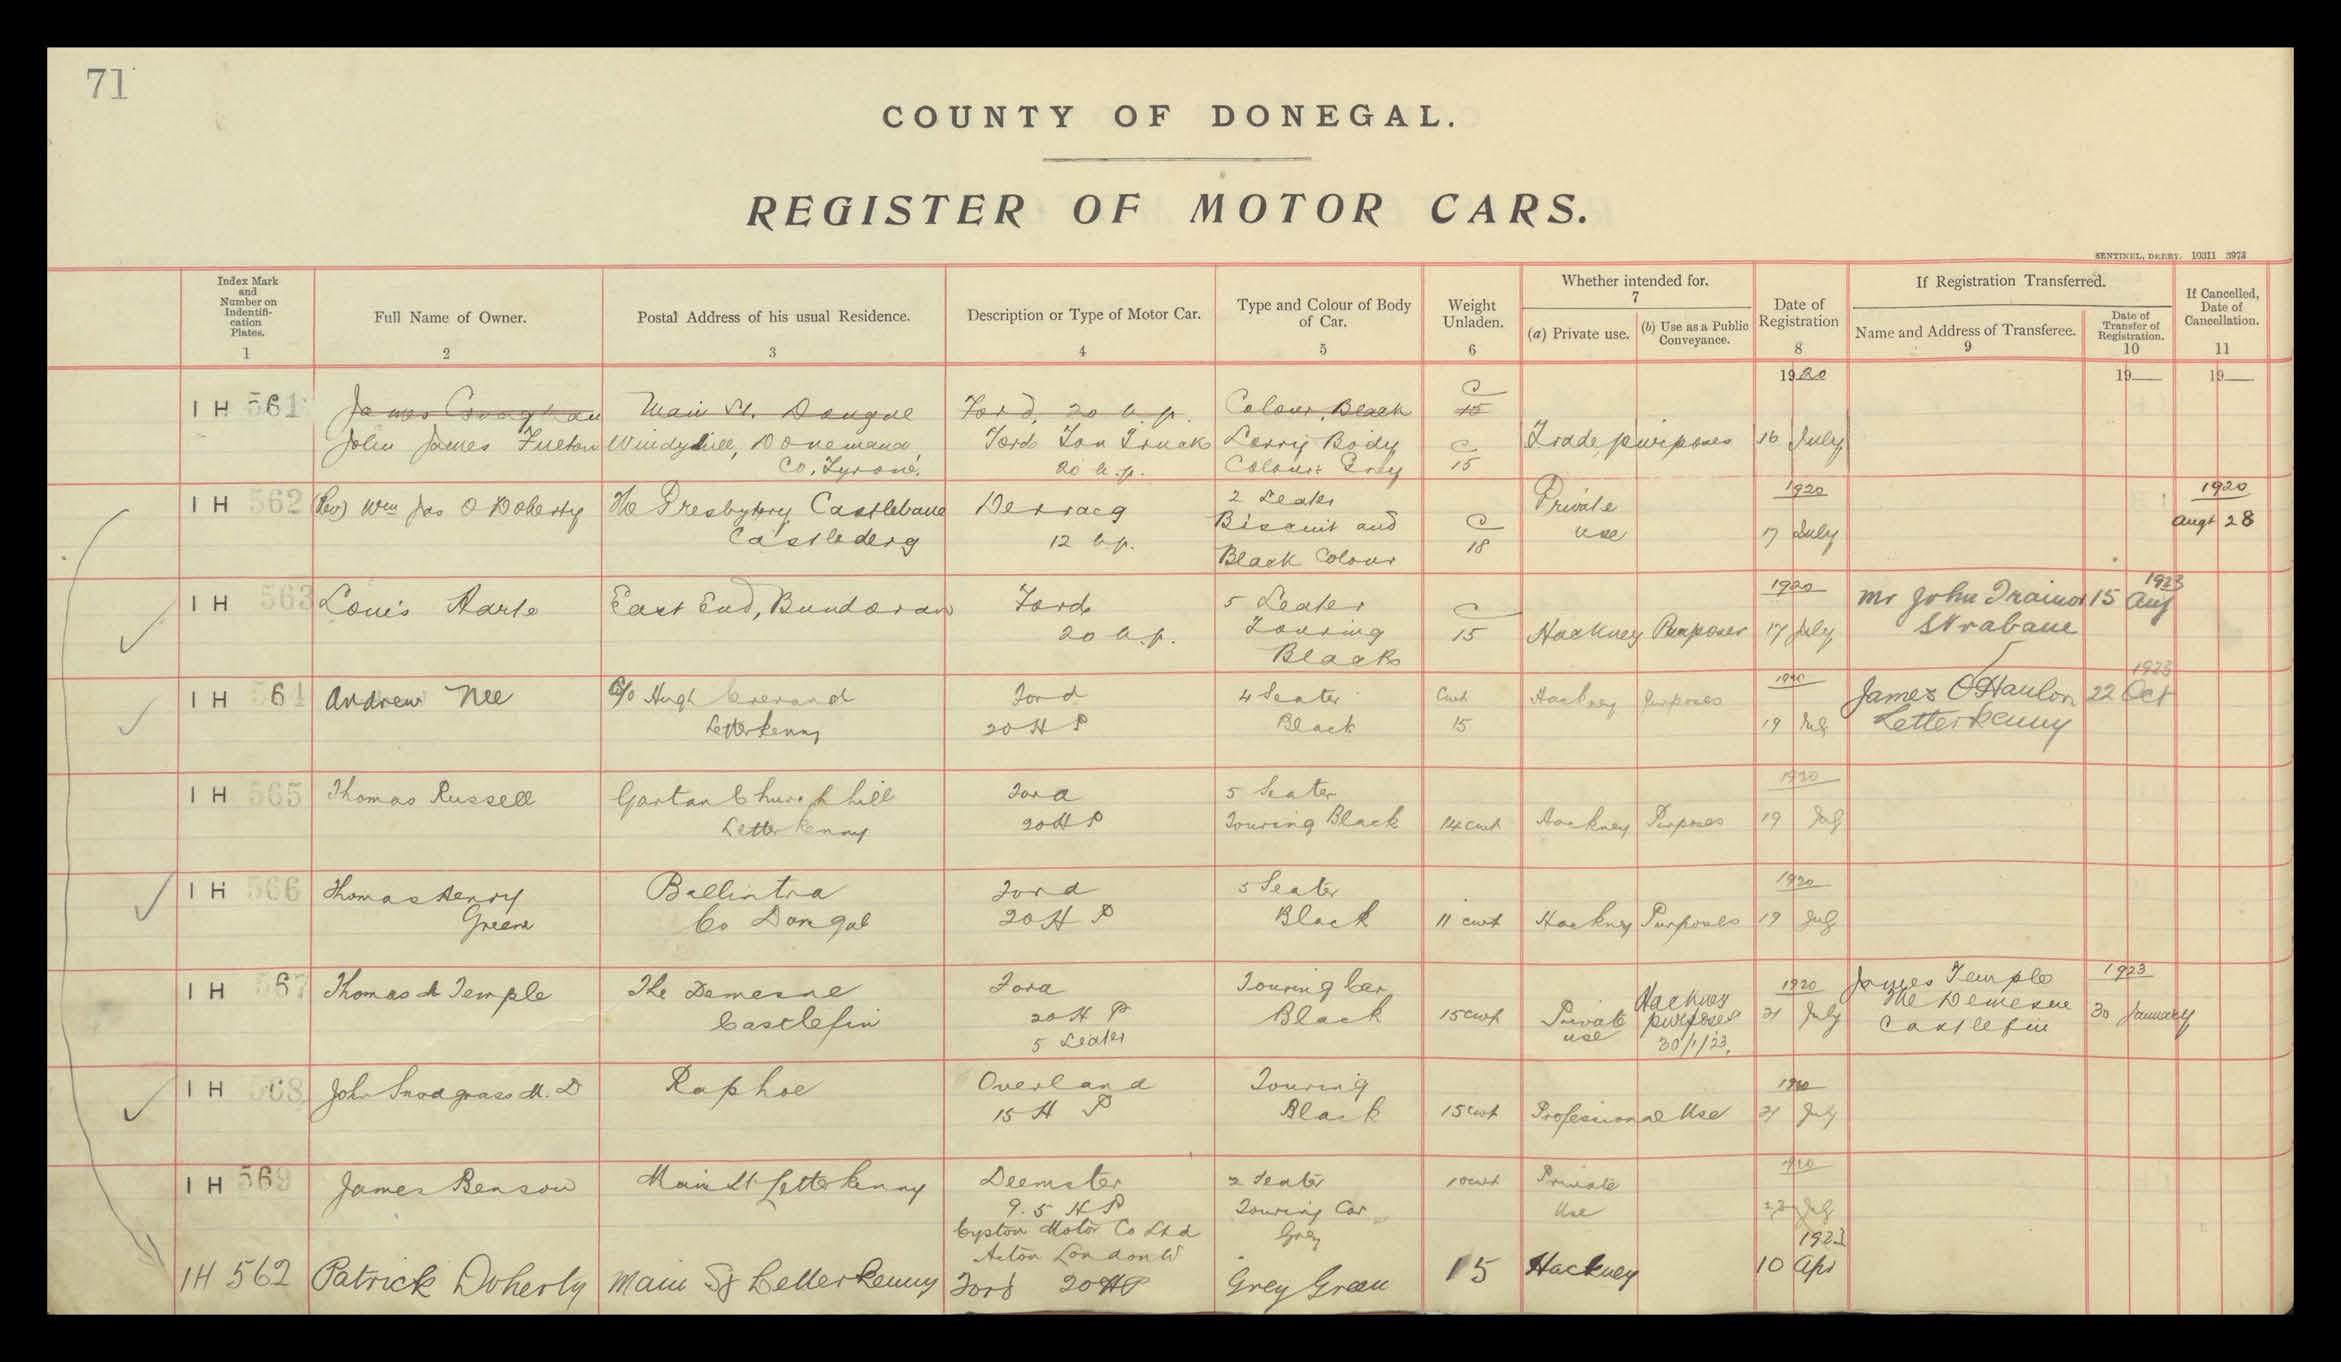 71
COUNTY OF DONEGAL.
REGISTER OF MOTOR CARS.
SENTINEL, DERRY. 10311 3973
Index Mark and Number on Indentifi-cation Plates. 1
Full Name of Owner. 2
Postal Address of his usual Residence. 3
Description or Type of Motor Car. 4
Type and Colour of Body of Car. 5
Weight Unladen. 6
Whether intended for. 7
(a) Private use.
(b) Use as a Public Conveyance.
Date of Registration 8
If Registration Transferred.
Name and Address of Transferee. 9
Date of Transfer of Registration. 10
If Cancelled, Date of Cancellation. 11
1920 19 19
I H 561 James Main St. Ford, 20 h.p. Colour, Black C 15
John James Fulton Windyhill, Donemana, Ford Ton Truck Lorry Body C Trade purposes 16 July
Co. Tyrone. 20 h.p. Colour: Grey 15
I H 562 (Rev) Wm Jas O'Doherty The Presbytery Castlebane Derracq 2 Seater Private 1920 1920
Castlederg 12 h.p. Biscuit and C 18 use 17 July Augt 28
Black Colour
I H 563 Louis Harte East End, Bundoran Ford 5 Seater C 1920 Mr John Trainor 15 Aug 1923
20 h.p. Touring 15 Hackney Purposes 17 July Strabane
Black
I H 564 Andrew Nee C/o Hugh Letterkenny Ford 4 Seater Cwt Hackney Purposes 1920 James O'Hanlon 22 Oct 1923
20 H P Black 15 19 July Letterkenny
I H 565 Thomas Russell Gartan Churchhill Ford 5 Seater 1920
Letterkenny 20 H P Touring Black 14 cwt Hackney Purposes 19 July
I H 566 Thomas Henry Ballintra Ford 5 Seater 1920
Greene Co Donegal 20 H P Black 11 cwt Hackney Purposes 19 July
I H 567 Thomas A Temple The Demesne Ford Touring Car Hackney 1920 James Temple 1923
Castlefin 20 H P Black 15 cwt Private purposes 21 July The Demesne 30 January
5 Seater use 30/1/23. Castlefin
I H 568 John Snodgrass M. D Raphoe Overland Touring 1920
15 H P Black 15 cwt Professional Use 21 July
I H 569 James Benson Main St Letterkenny Deemster 2 Seater 10 cwt Private 1920
9.5 H P Touring Car Use 22 July
Motor Co Ltd Grey
Acton London W 1921
IH 562 Patrick Doherty Main St Letterkenny Ford 20 HP Grey Green 15 Hackney 10 Apr